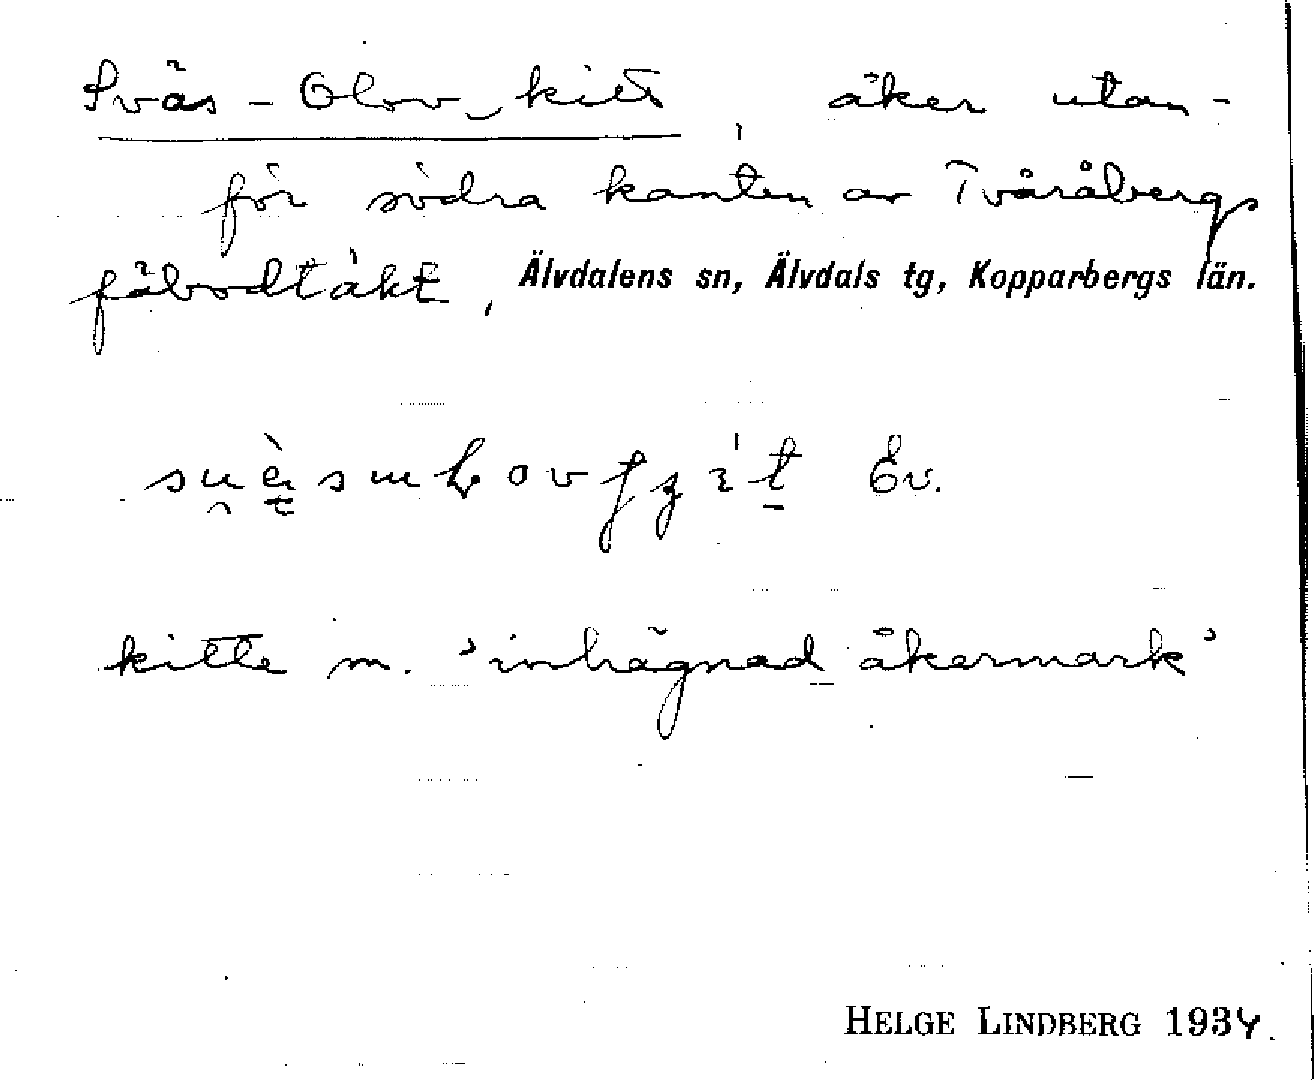 Sväs-Olov_kitt, åker utan-
för södra kanten av Tvåråbergs
fäbodtäkt, Älvdalens sn, Älvdals tg, Kopparbergs län.
Ev.
kitte m. 'inhägnad åkermark'
HELGE LINDBERG 1934.